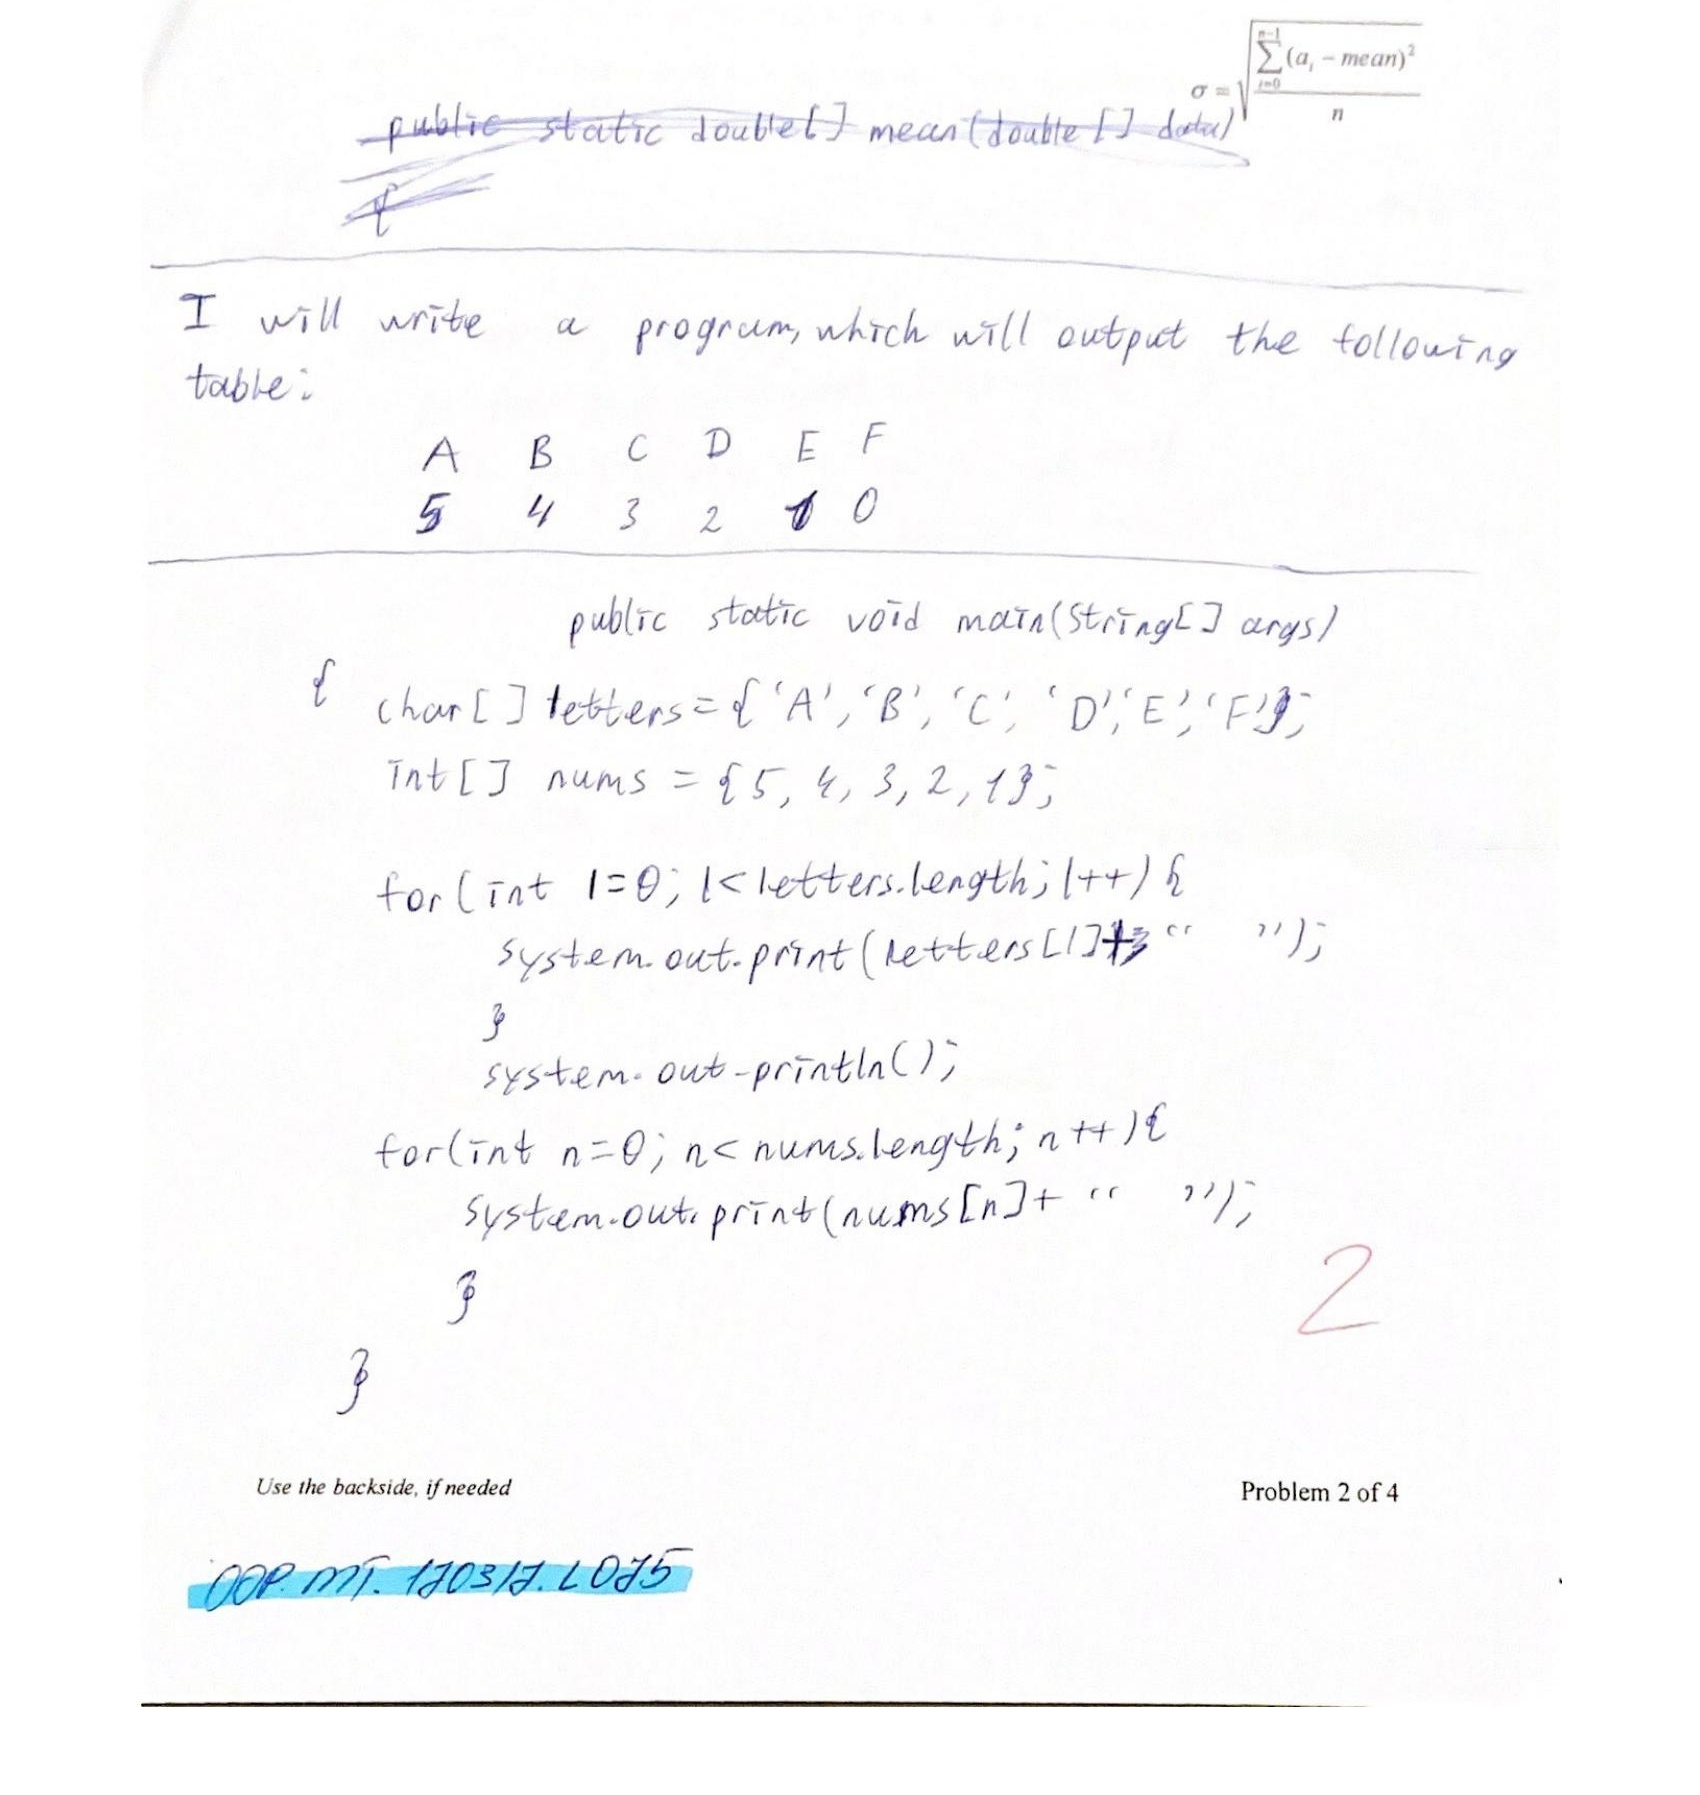 σ = √ Σ (a_i − mean)² / n
n-1
i=0
public static double[] mean(double [] data)
{
I will write a program, which will output the following
table:
A B C D E F
5 4 3 2 1 0
public static void main(String[] args)
{ char[] letters = { 'A', 'B', 'C', 'D', 'E', 'F'};
int[] nums = {5, 4, 3, 2, 1};
for(int l=0; l<letters.length; l++) {
system.out.print(letters[l]+ "   ");
}
system.out.println();
for(int n=0; n< nums.length; n++){
system.out.print(nums[n]+ "   ");
}
2
}
Use the backside, if needed
Problem 2 of 4
OOP. MT. 170317. L075